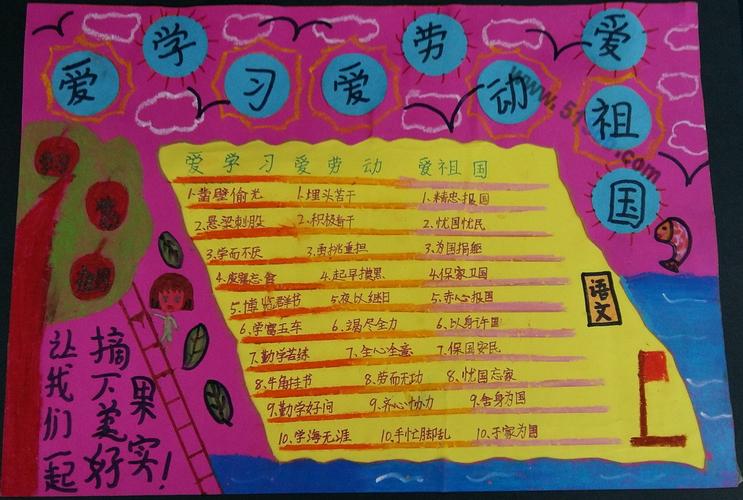 爱学习爱劳动爱祖国
爱学习 爱劳动 爱祖国
1.凿壁偷光 1.埋头苦干 1.精忠报国
2.悬梁刺股 2.积极肯干 2.忧国忧民
3.学而不厌 3.勇挑重担 3.为国捐躯
4.废寝忘食 4.起早摸黑 4.保家卫国
5.博览群书 5.夜以继日 5.赤心报国
6.学富五车 6.竭尽全力 6.以身许国
7.勤学苦练 7.全心全意 7.保国安民
8.牛角挂书 8.劳而无功 8.忧国忘家
9.勤学好间 9.齐心协力 9.舍身为国
10.学海无涯 10.手忙脚乱 10.于家为国
语文
学习
祖国
让我们一起
摘下美好
果实!